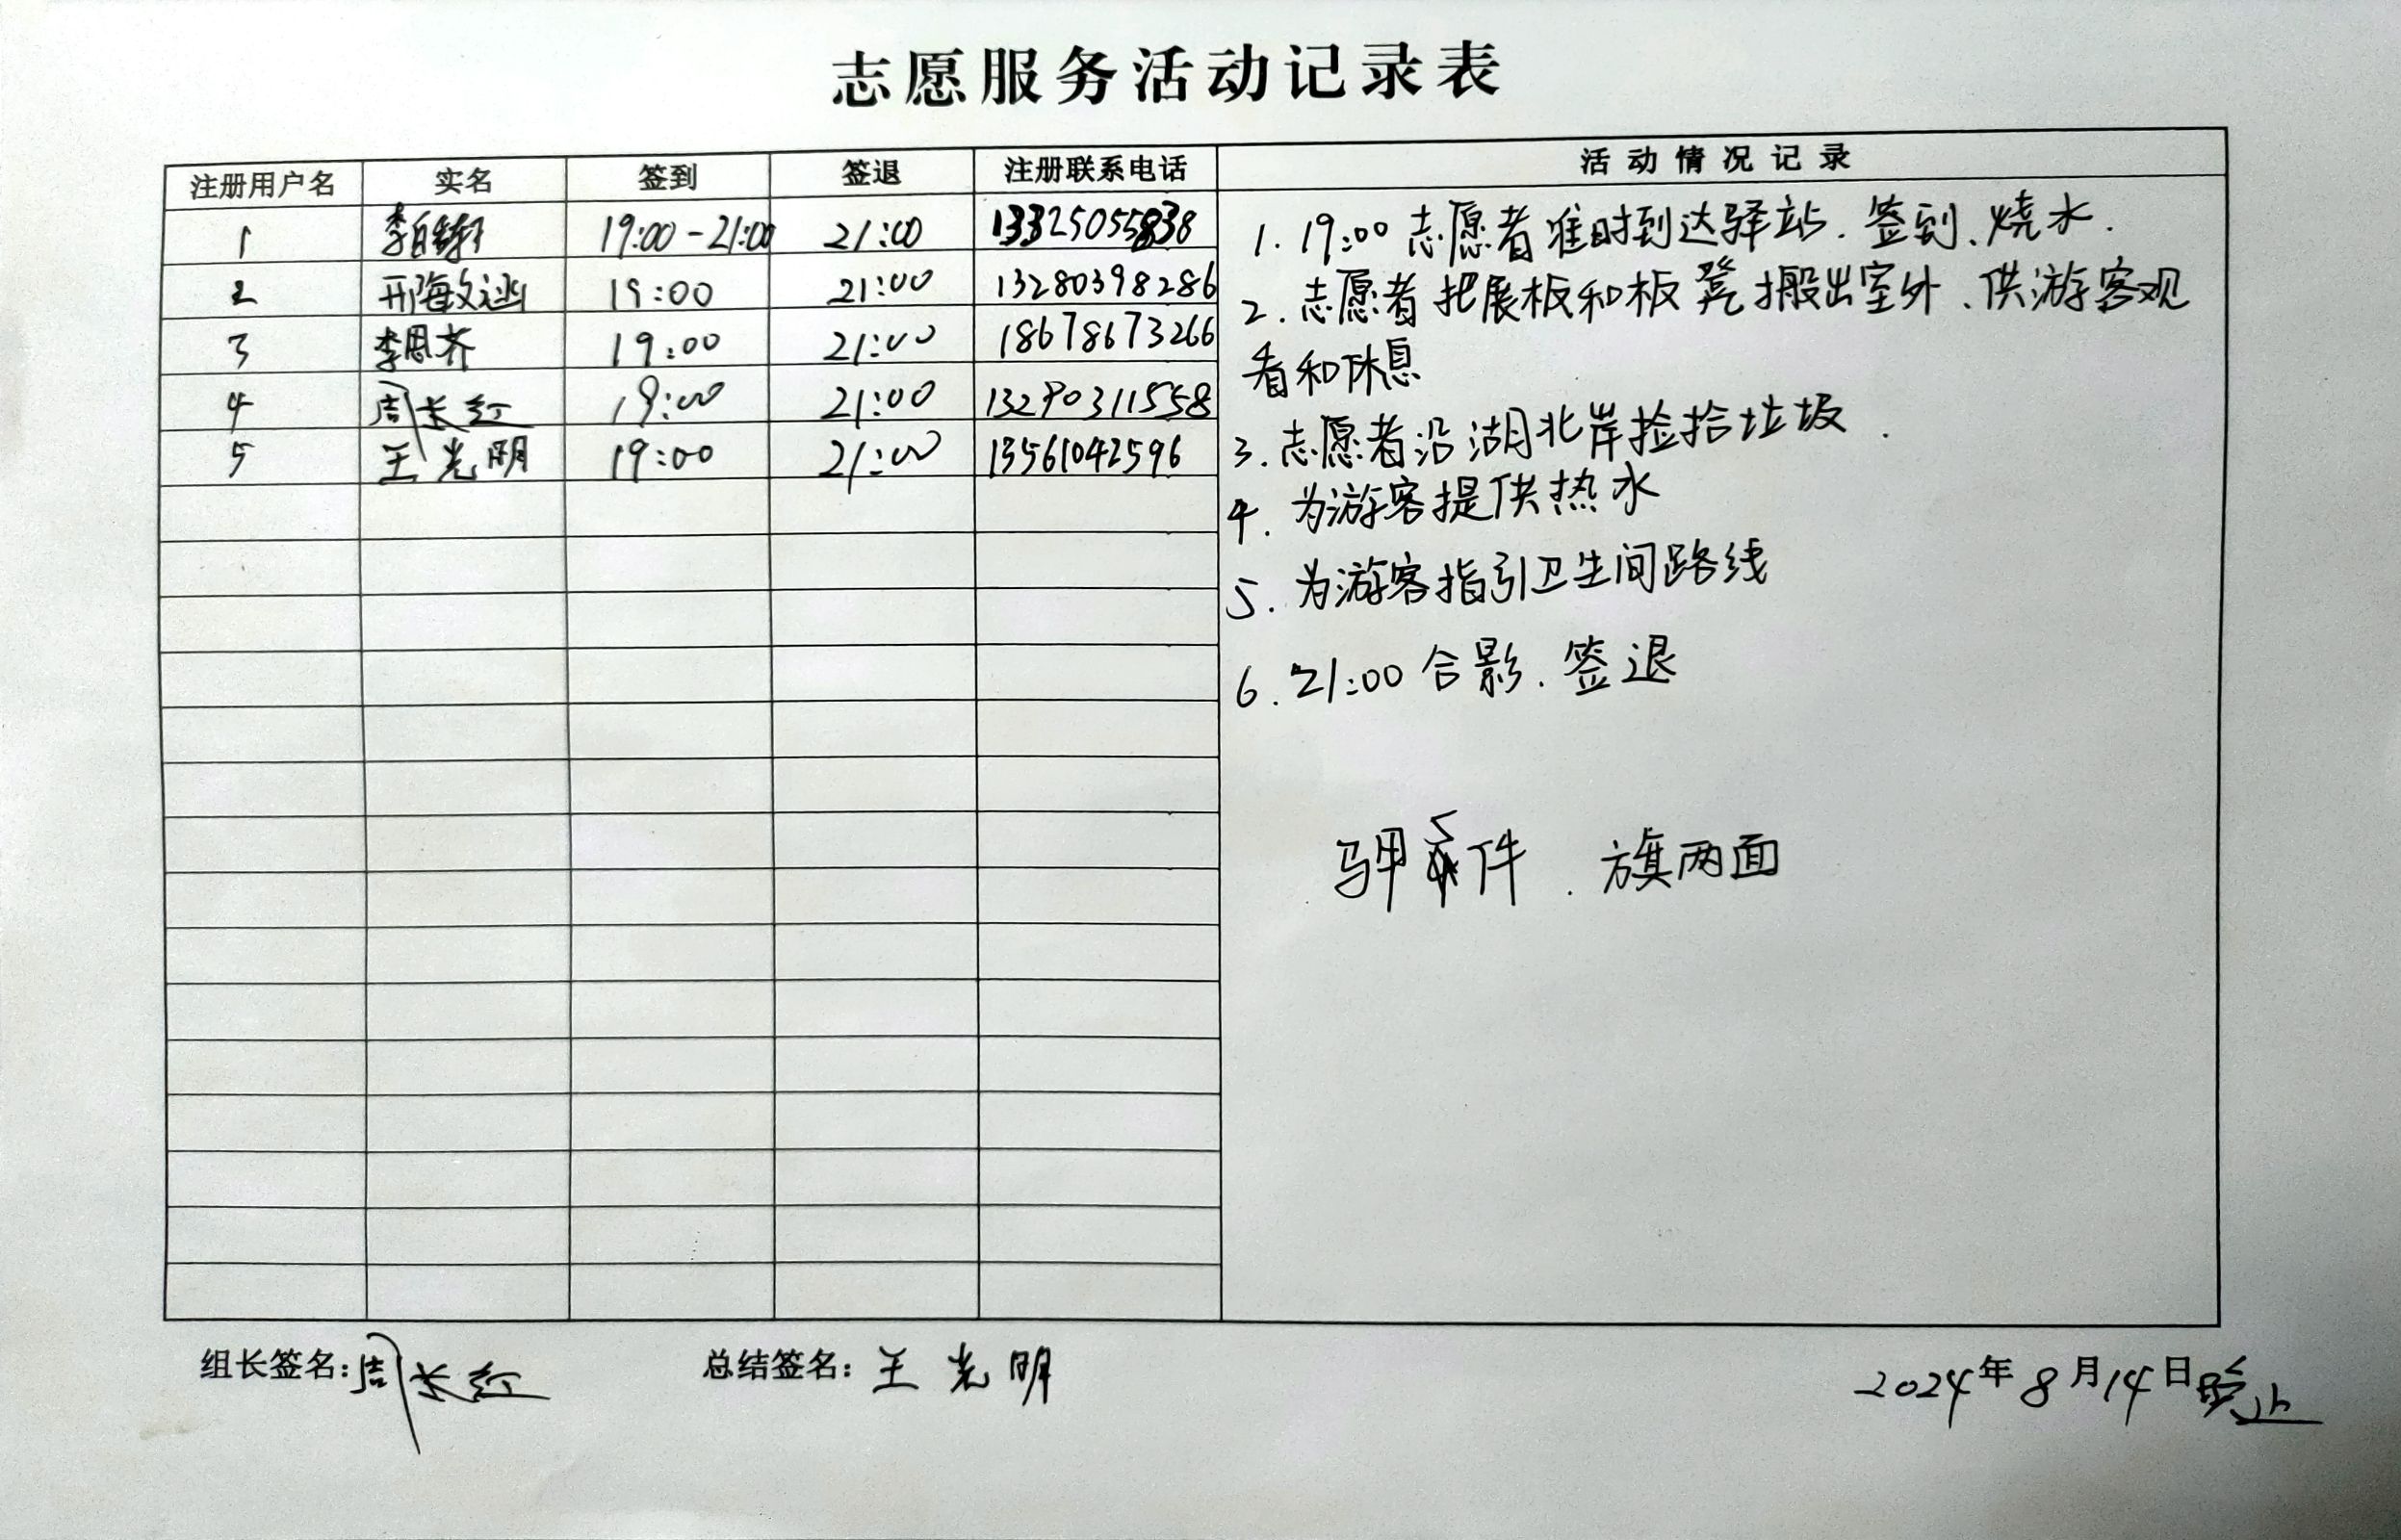 志愿服务活动记录表
注册用户名 实名 签到 签退 注册联系电话 活动情况记录
1 19:00-21:00 21:00 13325055838
2 19:00 21:00 13280398286
3 李思齐 19:00 21:00 18678673266
4 周长红 19:00 21:00 13290311558
5 王光明 19:00 21:00 13561042596
1. 19:00 志愿者准时到达驿站. 签到、烧水.
2. 志愿者把展板和板凳搬出室外、供游客观
看和休息
3. 志愿者沿湖北岸捡拾垃圾.
4. 为游客提供热水
5. 为游客指引卫生间路线
6. 21:00 合影. 签退
5件. 旗两面
组长签名: 周长红 总结签名: 王光明 2024年8月14日晚上